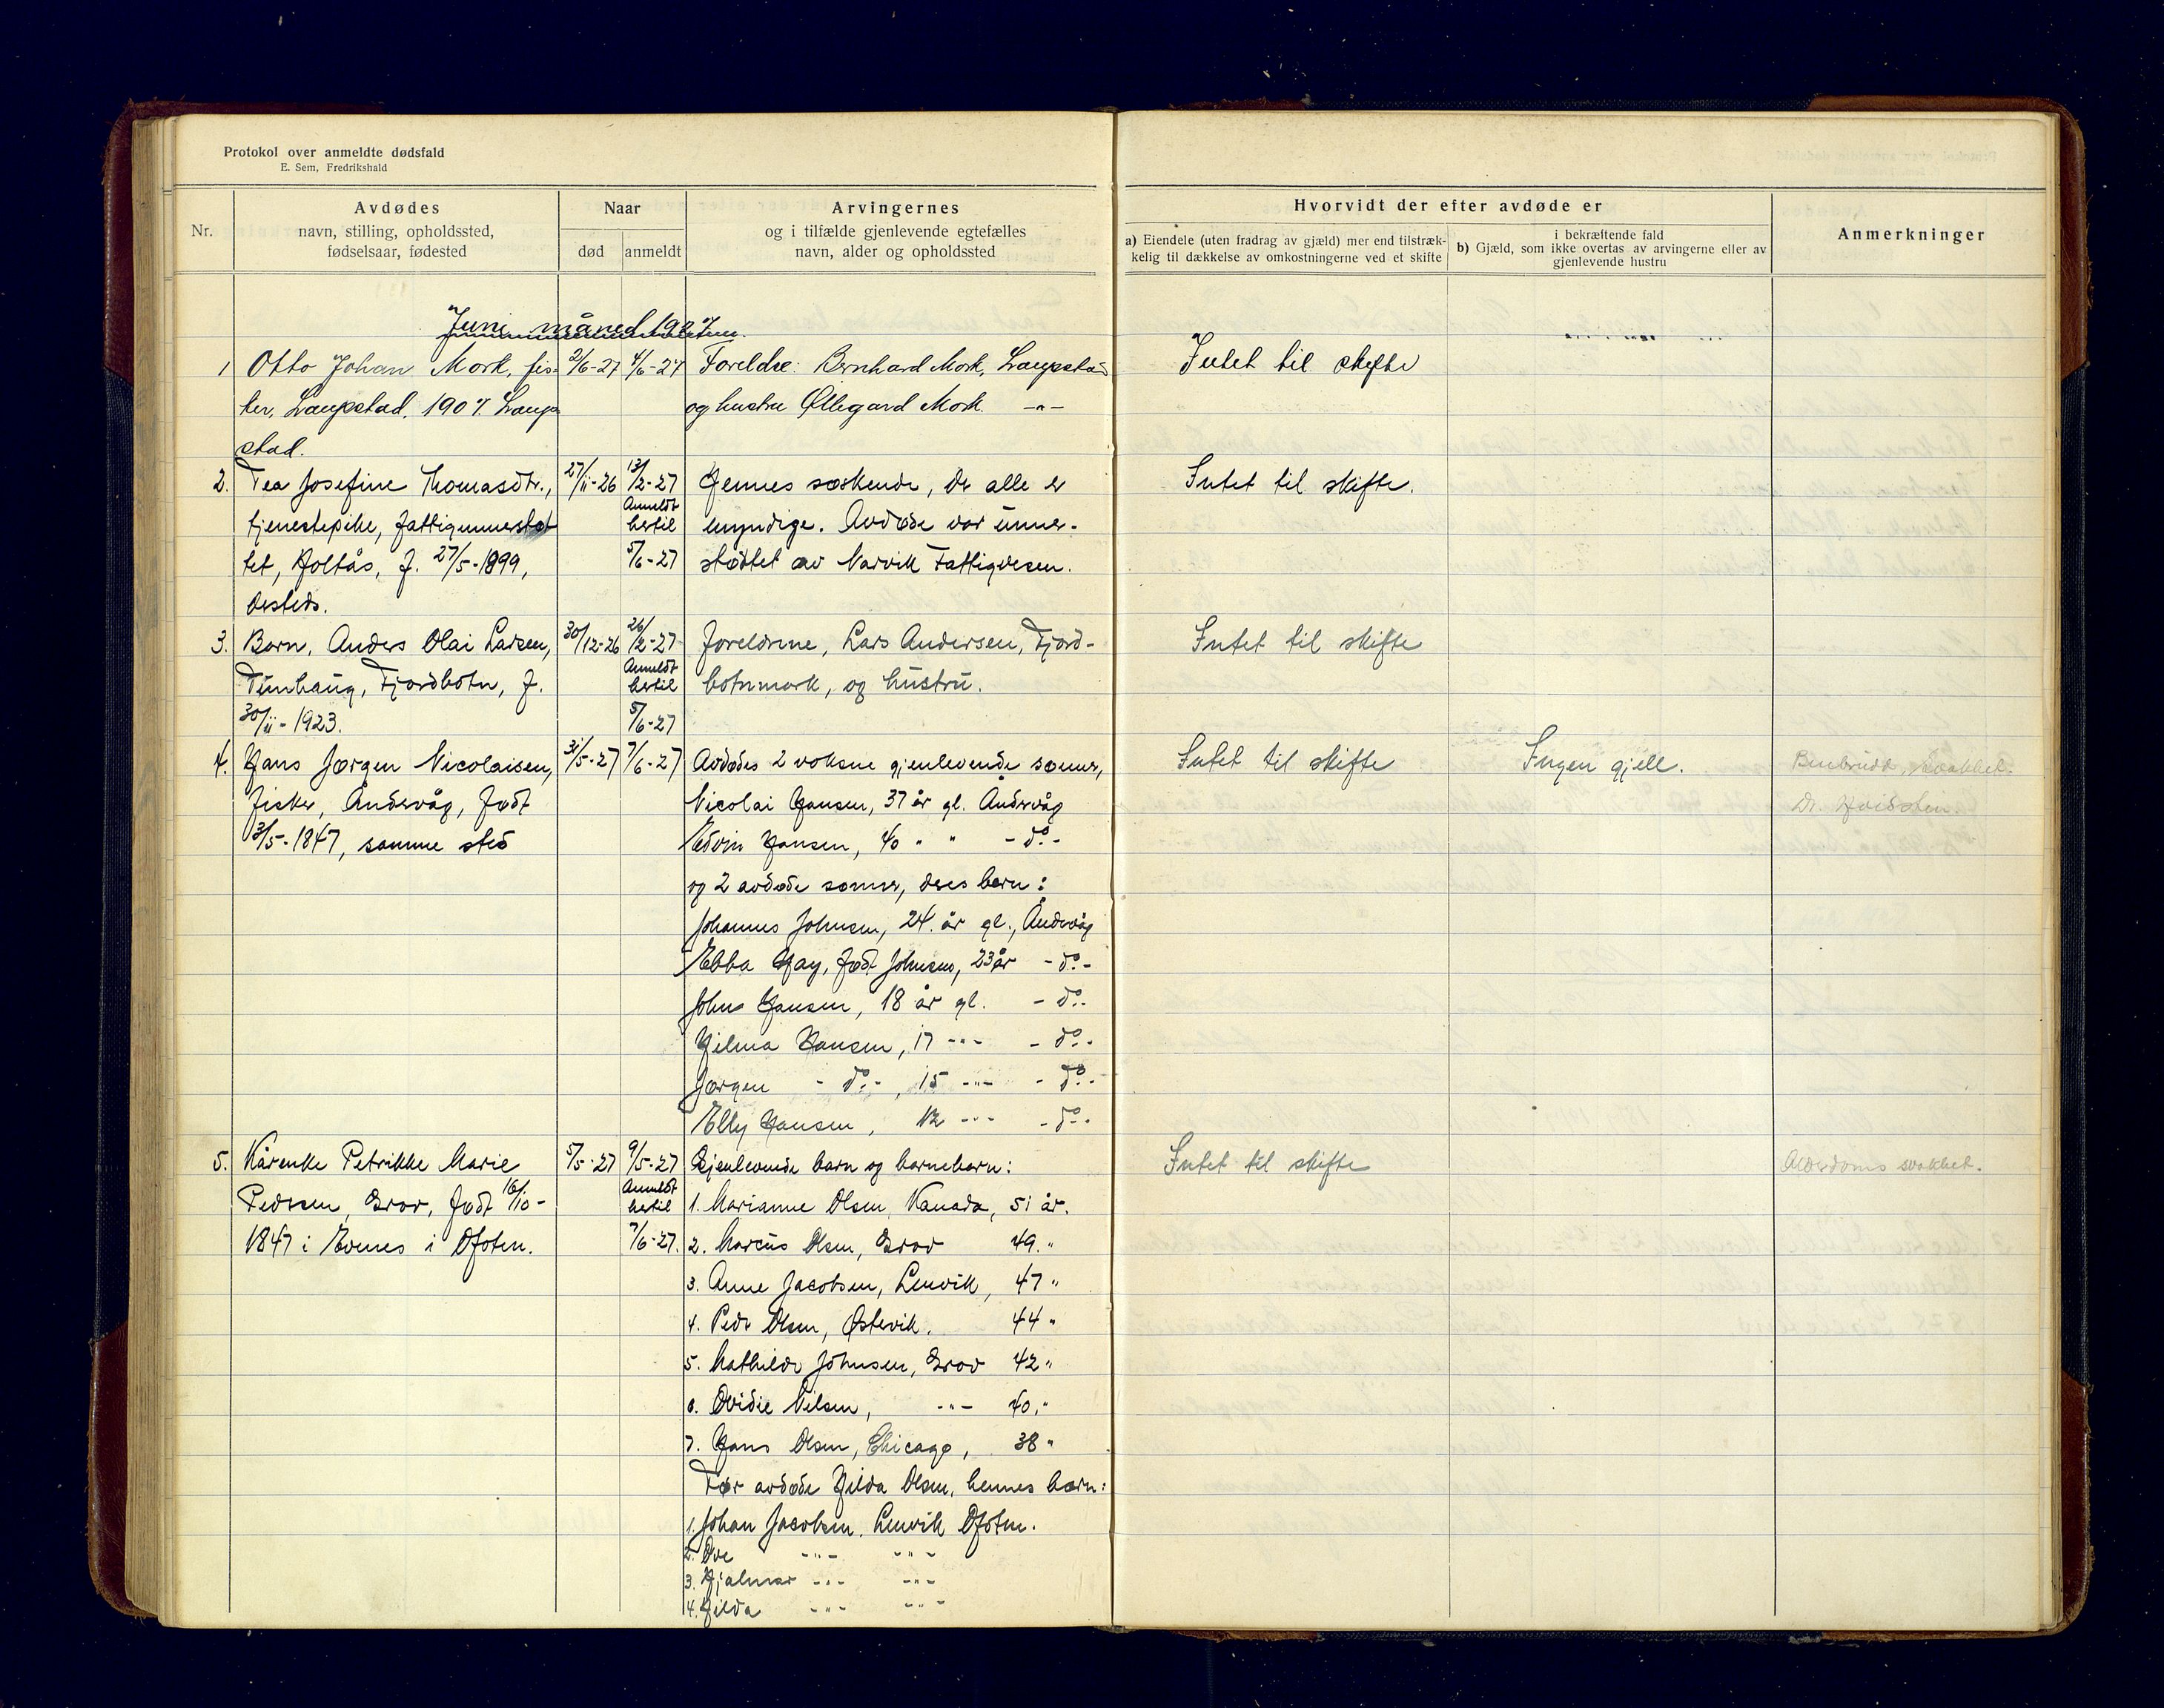 Protokol over anmeldte dødsfald
E. Sem, Fredrikshald
Nr.
Avdødes
navn, stilling, opholdssted,
fødselsaar, fødested
Naar
død
anmeldt
Arvingernes
og i tilfælde gjenlevende egtefælles
navn, alder og opholdssted
Hvorvidt der efter avdøde er
a) Eiendele (uten fradrag av gjæld) mer end tilstræk-
kelig til dækkelse av omkostningerne ved et skifte
i bekræftende fald
b) Gjæld, som ikke overtas av arvingerne eller av
gjenlevende hustru
Anmerkninger
Juni måned 1927.
1 Otto Johan Mork, fis- 2/6-27 4/6-27 Foreldre: Bernhard Mork, Laupstad Intet til skifte
ker, Laupstad, 1907. Laup og hustru Øllegard Mork -"-
stad.
2. Tea Josefine Thomasdtr., 27/11-26 13/2-27 Hennes søskende, der alle er Intet til skifte.
tjenestepike, fattigunnerstøt Anmeldt hertil umyndige. Avdøde var unner-
tet, Holtås, f. 27/5-1899, 5/6-27 støttet av Narvik Fattigvesen.
dersteds.
3. Barn, Anders Olai Larsen, 30/12-26 26/2-27 Foreldrene, Lars Andersen, Fjord- Intet til skifte
Tunhaug, Fjordbotn, f. Anmeldt hertil botnmark, og hustru.
30/11-1923. 5/6-27
4. Hans Jørgen Nicolaisen, 31/5-27 7/6-27 Avdødes 2 voksne gjenlevende sønner, Intet til skifte Ingen gjell. Benbrudd, svakhet.
fisker, Åndervåg, født Nicolai Hansen, 37 år gl. Åndervåg Dr.
3/5-1847, samme sted Edvin Hansen, 40 " " - do -
og 2 avdøde sønner, deres barn:
Johannes Johnsen, 24. år gl., Åndervåg
Ebba Hay, født Johnsen, 23 år - do -
John Hansen, 18 år gl. - do -
Hilma Hansen, 17 -"- - do -
Jørgen - do -, 15 -"- - do -
Elly Hansen, 12 -"- - do -
5. Kårenke Petrikke Marie 5/5-27 9/5-27 Gjenlevende barn og barnebarn: Intet til skifte Alderdoms svakhet.
Pedersen, Grov, født 16/10- Anmeldt hertil 1. Marianne Olsen, Kanada, 51 år.
1847 i Evenes i Ofoten. 7/6-27. 2. Marcus Olsen, Grov 49. "
3. Anne Jacobsen, Lenvik, 47 "
4. Peder Olsen, Østervik. 44 "
5. Mathilde Johnsen, Grov 42 "
6. Ovidie Nilsen, -"- 40, "
7. Hans Olsen, Chicago, 38 "
Før avdøde Hilda Olsen, hennes barn:
1. Johan Jacobsen. Lenvik Ofoten.
2. Ove -"- -"-
3. Hjalmar -"- -"-
4. Hilda -"- -"-